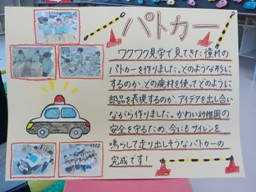 パトカー
ワクワク見学で見てきた憧れの
パトカーを作りました。どのような形に
するのか、どの廃材を使ってどのように
部品を表現するのか、アイデアを出し合い
ながら作りました。かわい幼稚園の
安全を守るため、今にもサイレンを
鳴らして走り出しそうなパトカーの
完成です!